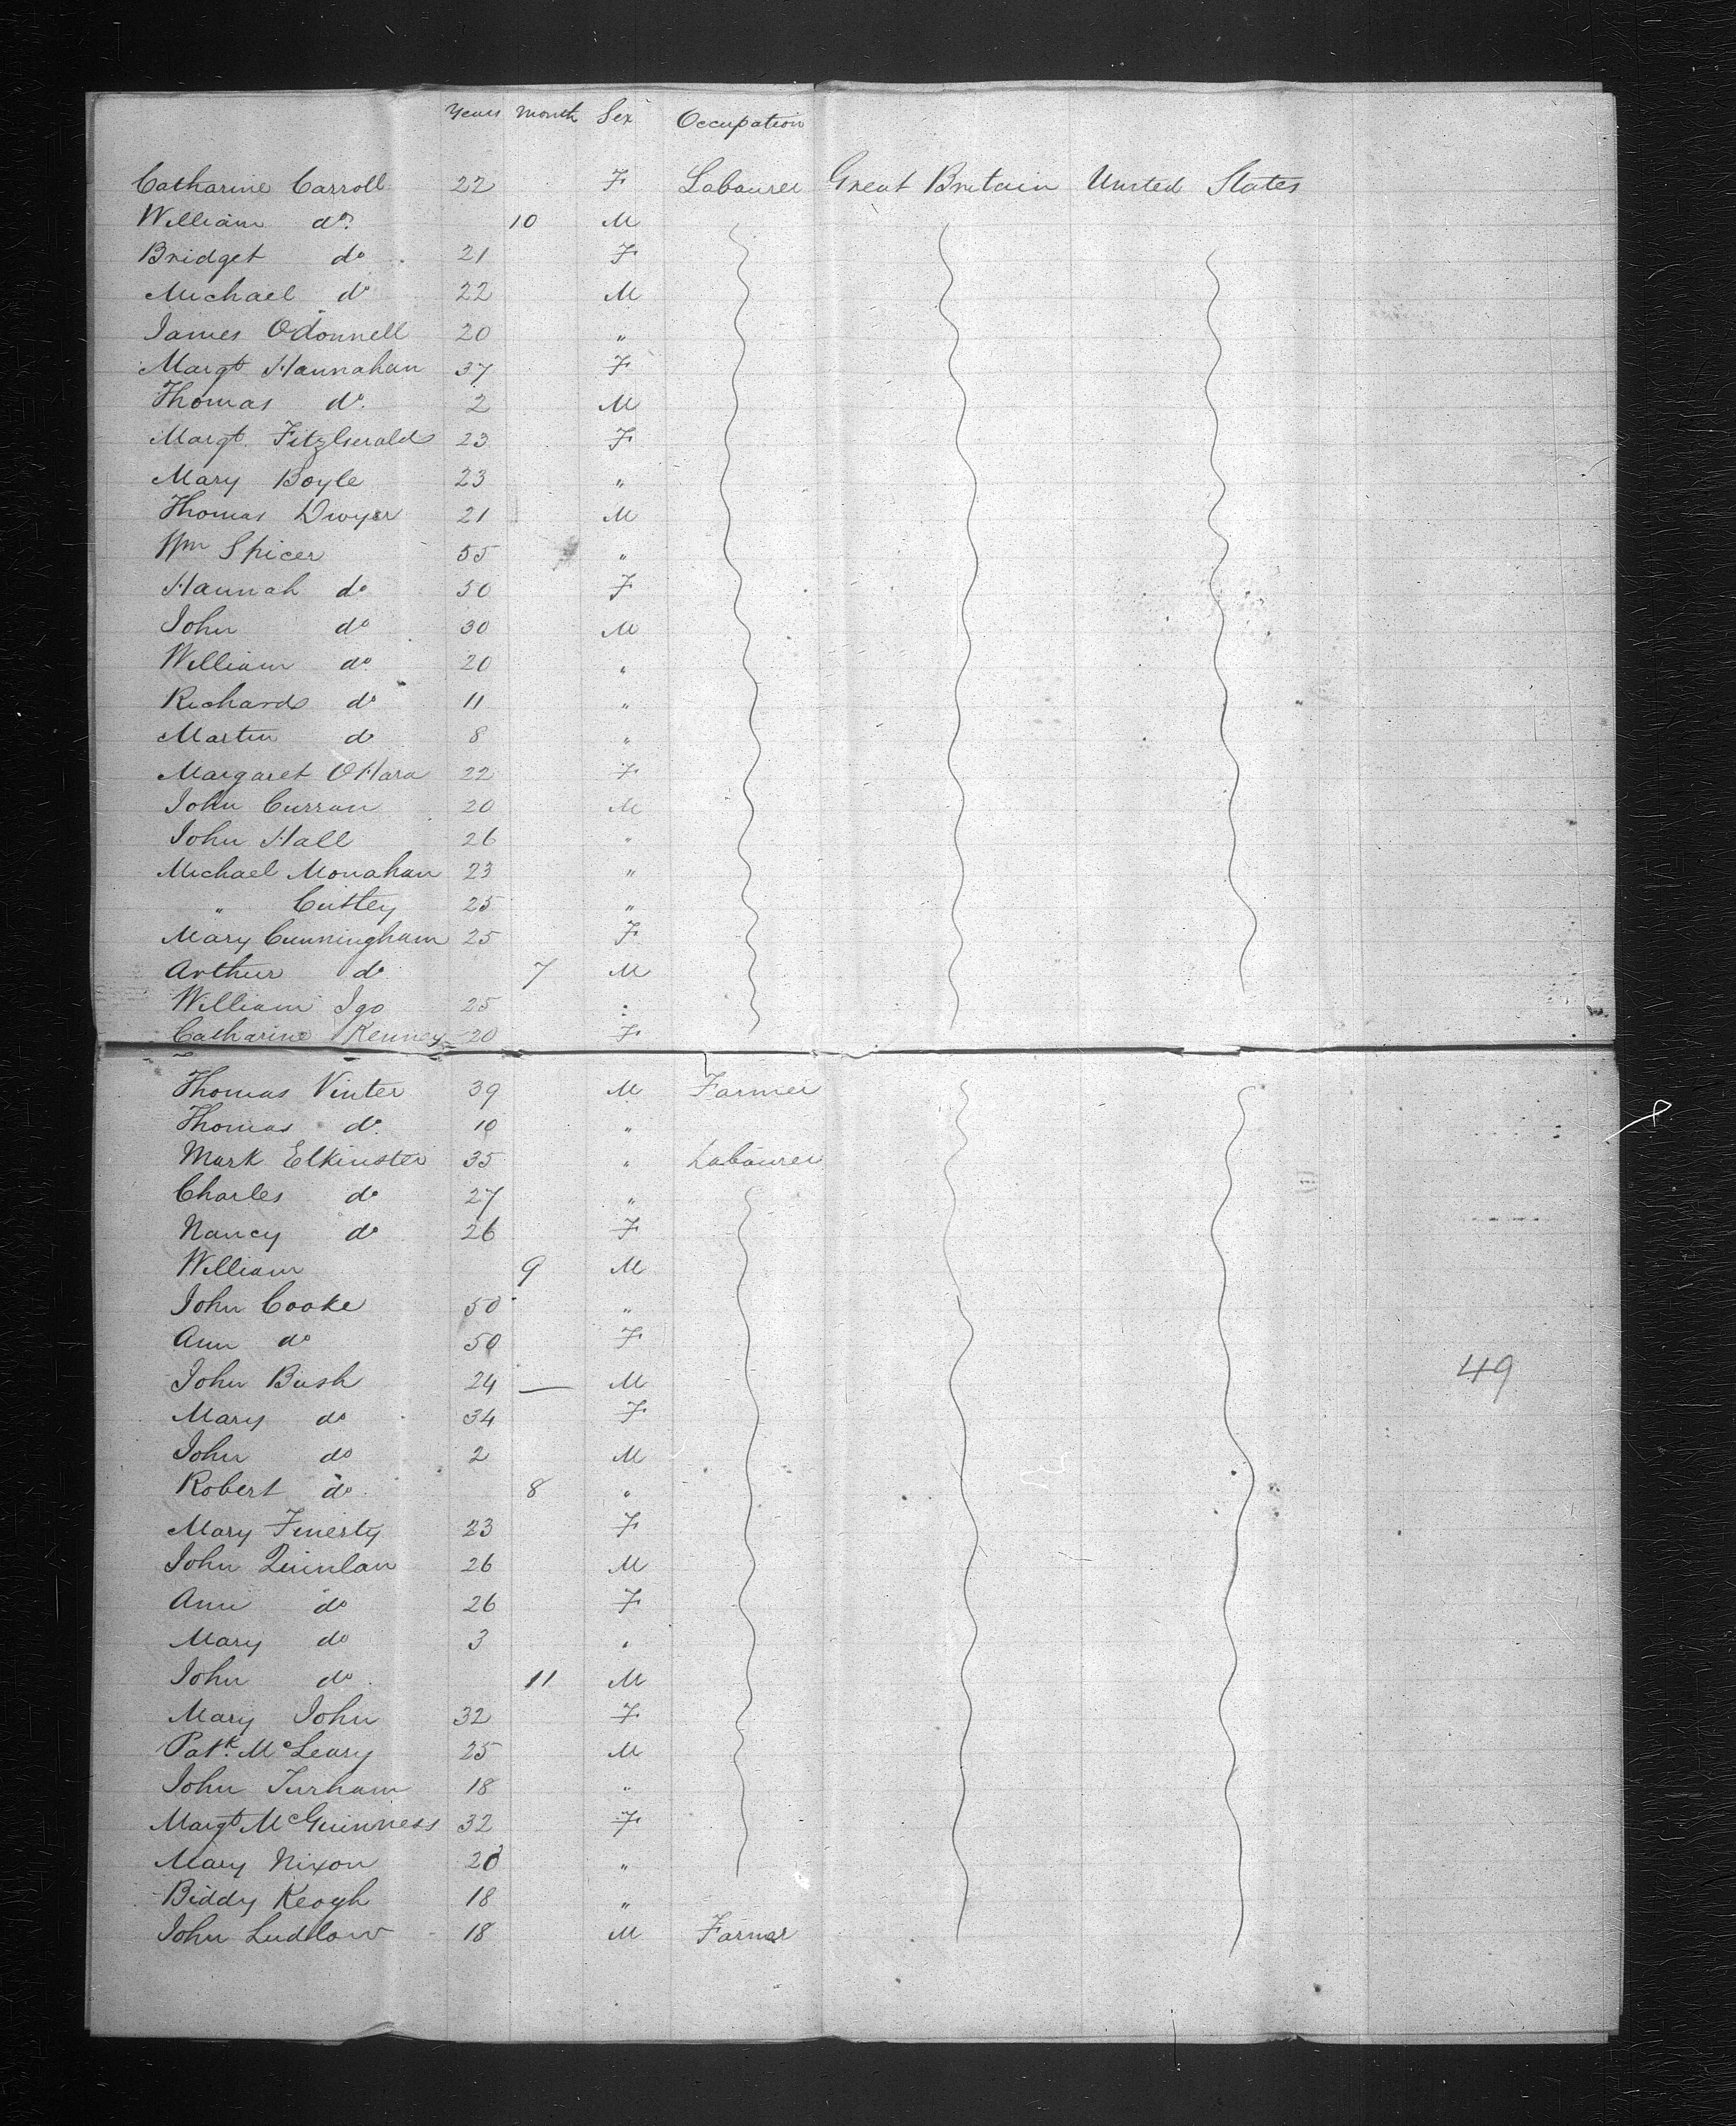 Years Month Sex Occupation
Catharine Carroll 22 F Labourer Great Britain United States
William do. 10 M
Bridget do 21 F
Michael do 22 M
James Odonnell 20 "
Margt Hannahan 37 F
Thomas do. 2 M
Margt. Fitzgerald 23 F
Mary Boyle 23 "
Thomas Dwyer 21 M
Wm Spicer 55 "
Hannah do 50 F
John do 30 M
William do 20 "
Richard do 11 "
Martin do 8 "
Margaret OHara 22 F
John Curran 20 M
John Hall 26 "
Michael Monahan 23 "
" 25 "
Mary Cunningham 25 F
Arthur do 7 M
William Igo 25 :
Catharine Kenney 20 F
Thomas Vinter 39 M Farmer
Thomas do. 10 "
Mark Elkinster 35 " Labourer
Charles do 27 "
Nancy do 26 F
William 9 M
John Cooke 50 "
Ann do 50 F
John Bush 24 — M
49
Mary do 34 F
John do 2 M
Robert do. 8 "
Mary Finerty 23 F
John Quinlan 26 M
Ann do 26 F
Mary do 3 "
John do. 11 M
Mary John 32 F
Patk. McLeary 25 M
John 18 "
Margt McGuinness 32 F
Mary Nixon 20 "
Biddy Keogh 18 "
John Ludlow 18 M Farmer